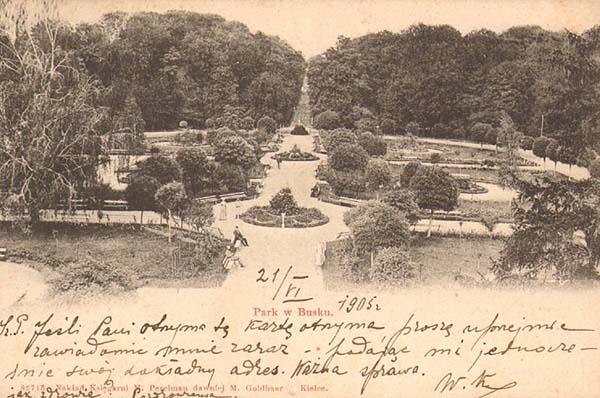 Park w Busku.
21/VI 1905 r
Jeśli Pani otrzyma tę kartę otrzyma, proszę uprzejmie
zawiadomić mnie zaraz - podając mi jednocze-
śnie swój dokładny adres. Ważna sprawa.
jak zdrowie? Pozdrowienia
Nakład Księgarni M. Peselman dawniej M. Goldhaar Kielce.